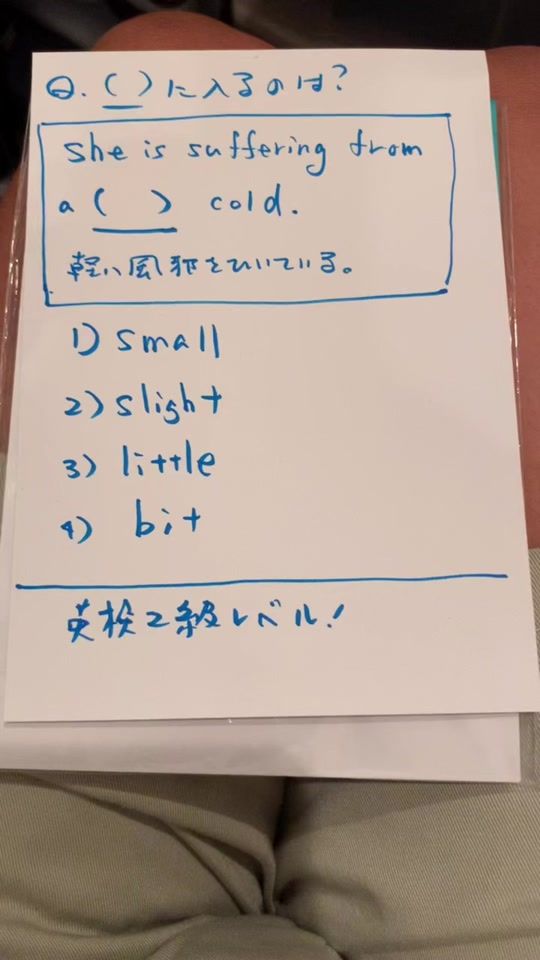 Q. ( )に入るのは?
She is suffering from
a ( ) cold.
軽い風邪をひいている。
1) small
2) slight
3) little
4) bit
英検2級レベル!